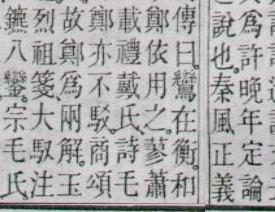 爲許晚年定論
說也。秦風正義
傳曰。鸞在衡。和
鄭依用之。蓼蕭
載禮戴氏。詩毛
鄭亦不駁。商頌
故鄭爲兩解。玉
烈祖箋大馭注
鑣八鸞。宗毛氏。